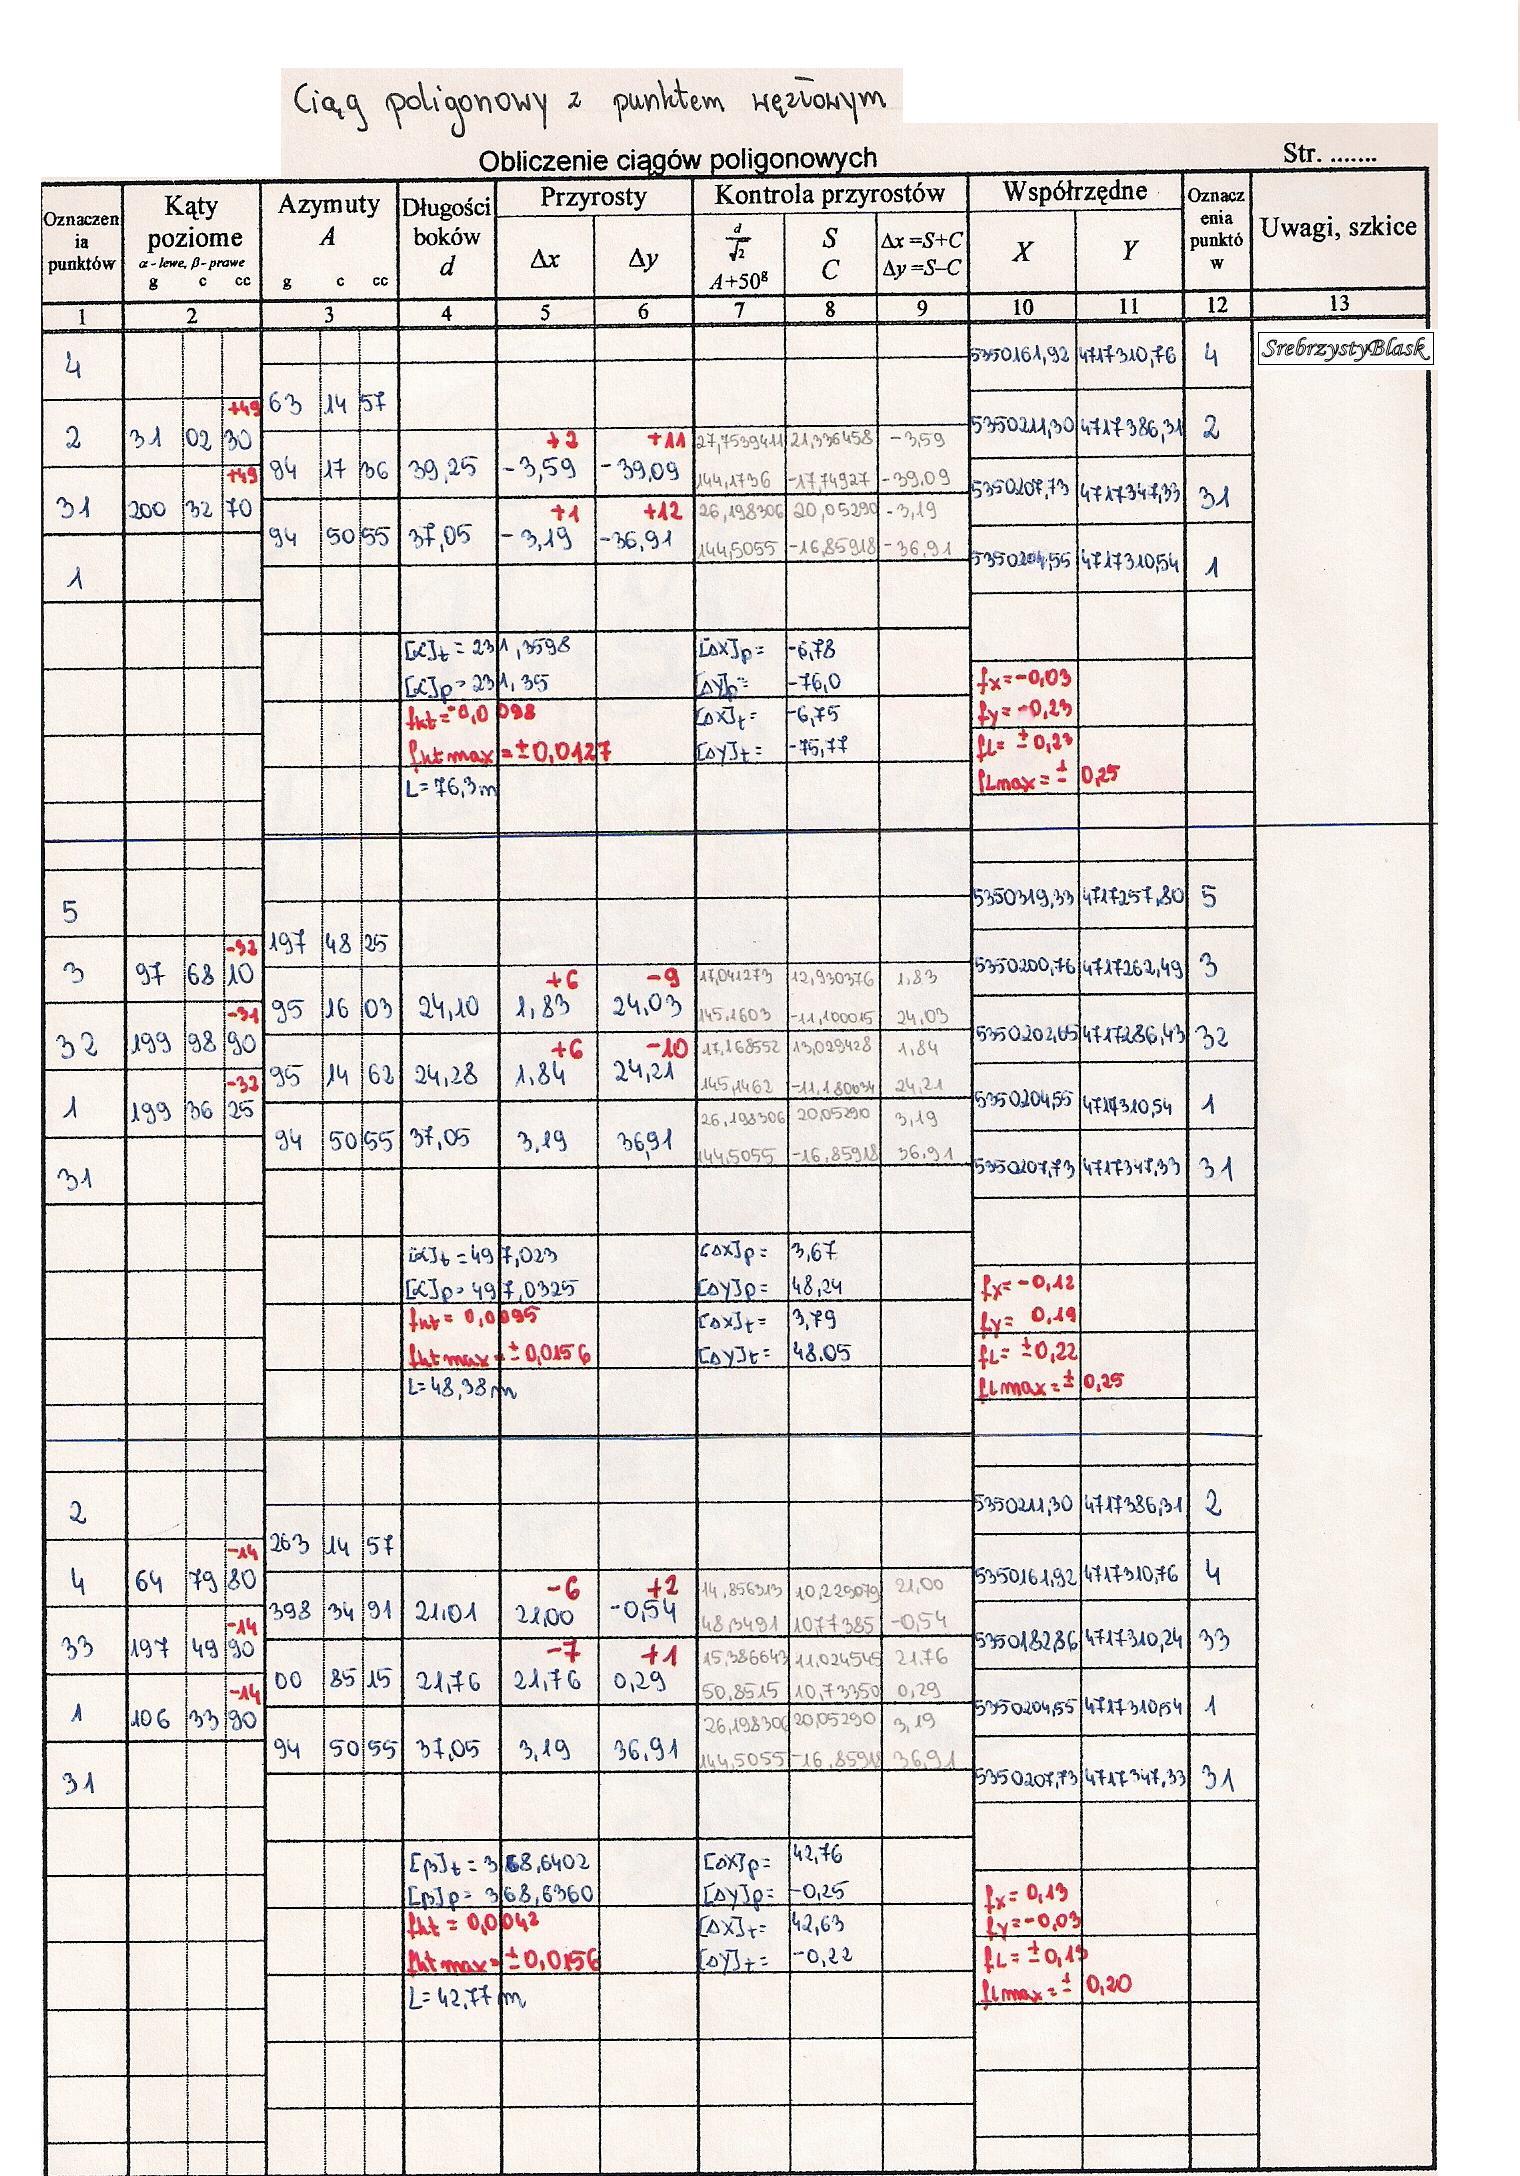 Ciąg poligonowy z punktem węzłowym
Obliczenie ciągów poligonowych
Str. .......
Oznaczen ia punktów | Kąty poziome α - lewe, β - prawe g c cc | Azymuty A g c cc | Długości boków d | Przyrosty Δx Δy | Kontrola przyrostów d/√2 A+50g S C Δx =S+C Δy =S–C | Współrzędne X Y | Oznacz enia punktó w | Uwagi, szkice
1 2 3 4 5 6 7 8 9 10 11 12 13
4 5350161,92 4717310,76 4
SrebrzystyBlask
63 14 57
+49
2 31 02 30 5350211,30 4717386,31 2
+2 +11 27,7539411 21,336458 -3,59
94 17 36 39,25 -3,59 -39,09 144,1736 -17,74927 -39,09
+49
31 200 32 70 5350207,73 4717347,33 31
+1 +12 26,198306 20,05290 -3,19
94 50 55 37,05 -3,19 -36,91 144,5055 -16,85918 -36,91
1 5350204,55 4717310,54 1
[α]t = 231,3598 [ΔX]p = -6,78
[α]p = 231,35 [ΔY]p = -76,0 fx = -0,03
fkt = -0,0098 [ΔX]t = -6,75 fy = -0,23
fkt max = ±0,0127 [ΔY]t = -75,77 fL = ±0,23
L = 76,3 m fLmax = ± 0,25
5 5350319,33 4717257,80 5
197 48 25
-32
3 97 68 10 5350200,76 4717262,49 3
+6 -9 17,041273 12,930376 1,83
95 16 03 24,10 1,83 24,03 145,1603 -11,100015 24,03
-31
32 199 98 90 5350202,65 4717286,43 32
+6 -10 17,168552 13,029428 1,84
95 14 62 24,28 1,84 24,21 145,1462 -11,180634 24,21
-32
1 199 36 25 5350204,55 4717310,54 1
26,198306 20,05290 3,19
94 50 55 37,05 3,19 36,91 144,5055 -16,85918 36,91
31 5350207,73 4717347,33 31
[α]t = 497,023 [ΔX]p = 3,67
[α]p = 497,0325 [ΔY]p = 48,24 fx = -0,12
fkt = 0,0095 [ΔX]t = 3,79 fy = 0,19
fkt max = ±0,0156 [ΔY]t = 48.05 fL = ±0,22
L = 48,38 m fLmax = ± 0,25
2 5350211,30 4717386,31 2
263 14 57
-14
4 64 79 80 5350161,92 4717310,76 4
-6 +2 14,856313 10,229079 21,00
398 34 91 21,01 21,00 -0,54 48,3491 10,77385 -0,54
-14
33 197 49 90 5350182,86 4717310,24 33
-7 +1 15,386643 11,024545 21,76
00 85 15 21,76 21,76 0,29 50,8515 10,73350 0,29
-14
1 106 33 90 5350204,55 4717310,54 1
26,198306 20,05290 3,19
94 50 55 37,05 3,19 36,91 144,5055 -16,85918 36,91
31 5350207,73 4717347,33 31
[β]t = 368,6402 [ΔX]p = 42,76
[β]p = 368,6360 [ΔY]p = -0,25 fx = 0,13
fkt = 0,0042 [ΔX]t = 42,63 fy = -0,03
fkt max = ±0,0156 [ΔY]t = -0,22 fL = ±0,13
L = 42,77 m fLmax = ± 0,20